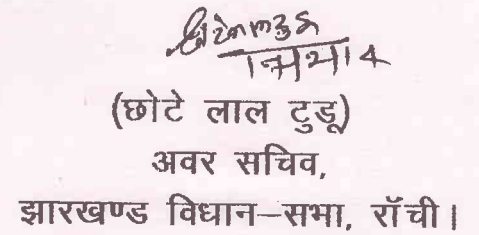 (छोटे लाल टुडू)
अवर सचिव,
झारखण्ड विधान–सभा, रॉची।